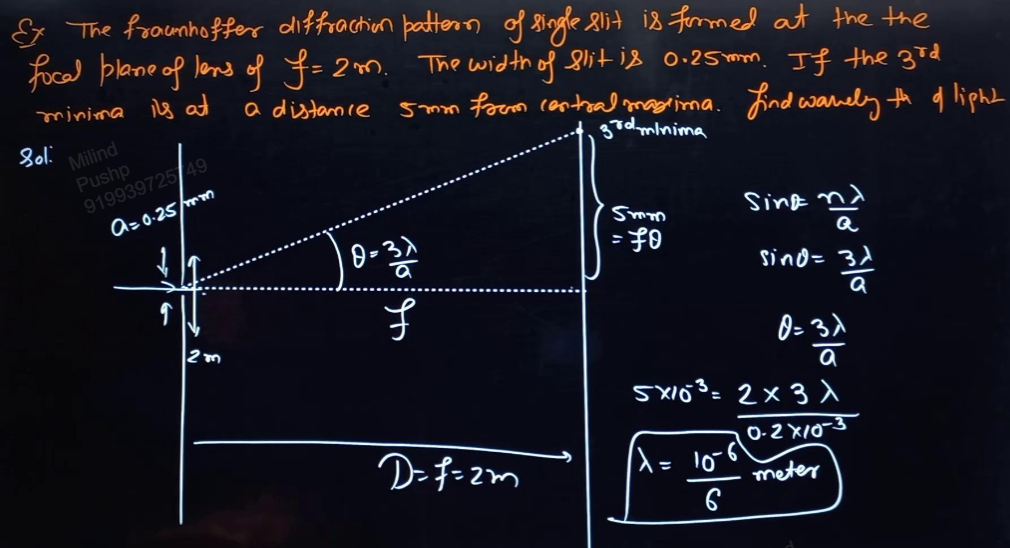 Ex The fraunhoffer diffraction pattern of single slit is formed at the the
focal plane of lens of f = 2m. The width of slit is 0.25mm. If the 3rd
minima is at a distance 5mm from central maxima. find wavelength of light
Sol:
Milind
Pushp
919939725749
a=0.25mm
3rd minima
5mm
= fθ
θ = 3λ/a
f
2m
D=f=2m
sinθ = nλ/a
sinθ = 3λ/a
θ = 3λ/a
5×10⁻³ = 2 × 3 λ / 0.2×10⁻³
λ = 10⁻⁶/6 meter